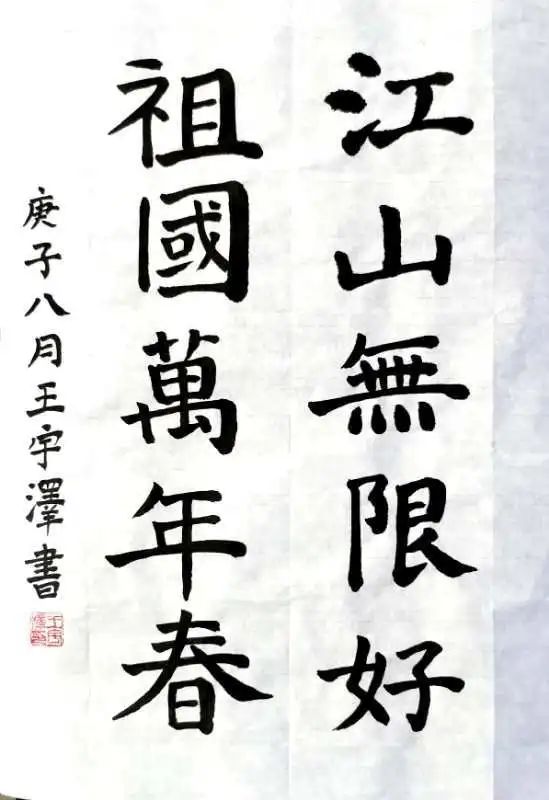 江山無限好
祖國萬年春
庚子八月王宇澤書